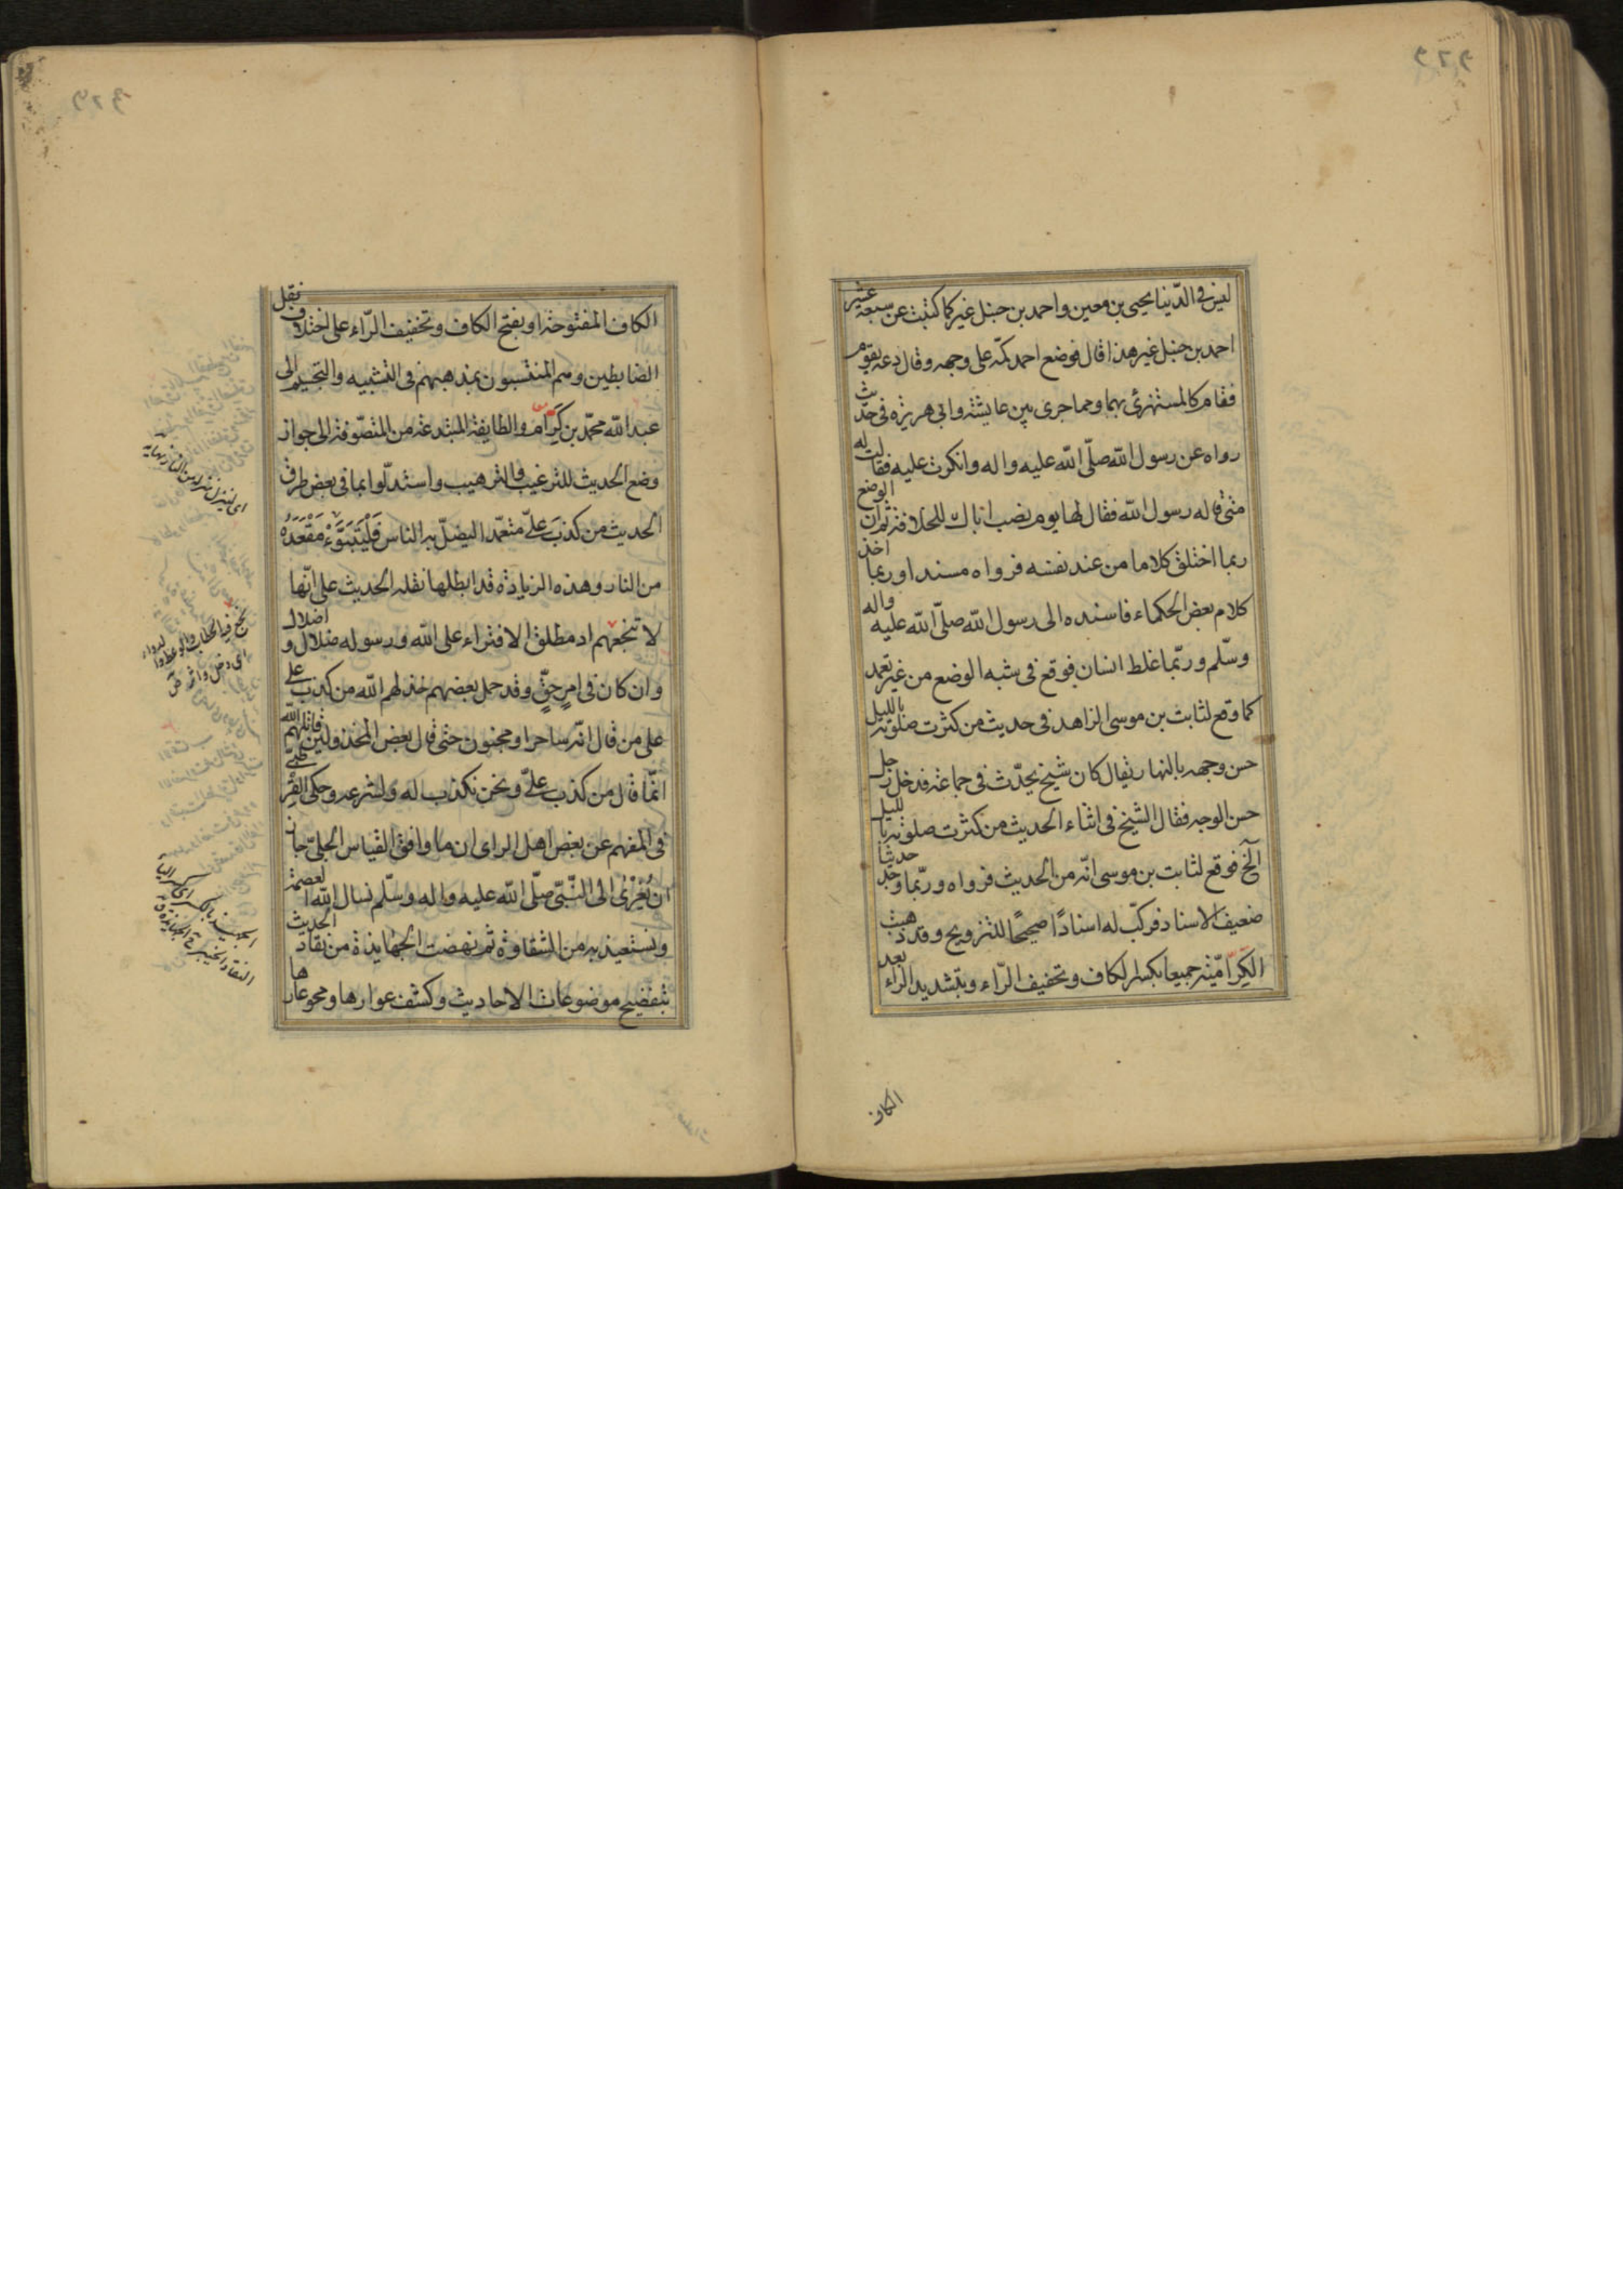 ليس في الدّنيا يحيى بن معين واحمد بن حنبل غيركما كتبت عن سبعة عشر
احمد بن حنبل غير هذا قال فوضع احمد كمّه على وجهه وقال دعه يقوم
فقام كالمستهزئ بهما ومما جرى بين عايشة وابي هريرة في حديث
رواه عن رسول الله صلّى الله عليه واله وانكرت عليه فقالت له
متى قاله رسول الله فقال لها يوم نصب اباك للخلافة ثم ان الوضع
ربما اختلق كلاما من عند نفسه فرواه مسندا وربما اخذ
كلام بعض الحكماء فاسنده الى رسول الله صلّى الله عليه واله
وسلّم وربّما غلط انسان فوقع في شبه الوضع من غير تعمد
كما وقع لثابت بن موسى الزاهد في حديث من كثرت صلوته بالليل
حسن وجهه بالنهار يقال كان شيخ يحدّث في جماعة فدخل رجل
حسن الوجه فقال الشيخ في اثناء الحديث من كثرت صلوته بالليل
الخ فوقع لثابت بن موسى انّه من الحديث فرواه وربّما وجد حديثا
ضعيف الاسناد فركّب له اسنادًا صحيحًا للترويج وقد ذهبت
الكَرّاميّة جميعا بكسر الكاف وتخفيف الرّاء وبتشديد الراء بعد
الكاف
الكاف المفتوحة او بفتح الكاف وتخفيف الرّاء على اختلاف نقل
الضابطين وهم المنتسبون بمذهبهم في التشبيه والتجسيم الى
عبد الله محمّد بن كرّام والطايفة المبتدعة من المتصوّفة الى جواز
وضع الحديث للترغيب والترهيب واستدلّوا بما في بعض طرق
الحديث من كذب علىّ متعمّدا ليضلّ به الناس فَلْيَتَبَوَّءْ مَقْعَدَهُ
من النار وهذه الزيادة قد ابطلها نقله الحديث على انّها
لا تنجعهم اذ مطلق الافتراء على الله ورسوله ضلال واضلال
وان كان في امرٍ حقٍّ وقد حمل بعضهم خذلهم الله من كذب علىّ
على من قال انّه ساحر او مجنون حتى قال بعض المخذولين قاتلهم الله
انّما قال من كذب علىّ ونحن نكذب له ولشرعه وحكى القرطبى
في المفهم عن بعض اهل الراى ان ما وافق القياس الجلىّ جاز
ان يُعْزٰى الى النّبىّ صلّى الله عليه واله وسلّم نسال الله العصمة
ونستعيذ به من الشقاوة ثم نهضت الجهابذة من نقاد الحديث
بتفضيح موضوعات الاحاديث وكشف عوارها ومحو عارها
اى لينزل منزله من النار نهاية
نجع فيه الخطاب والوعظ والدواء
اى دخل واثر ص
الجهبذ بالكسر اى بكسر الباء
النقاد الخبير ج الجهابذة ق